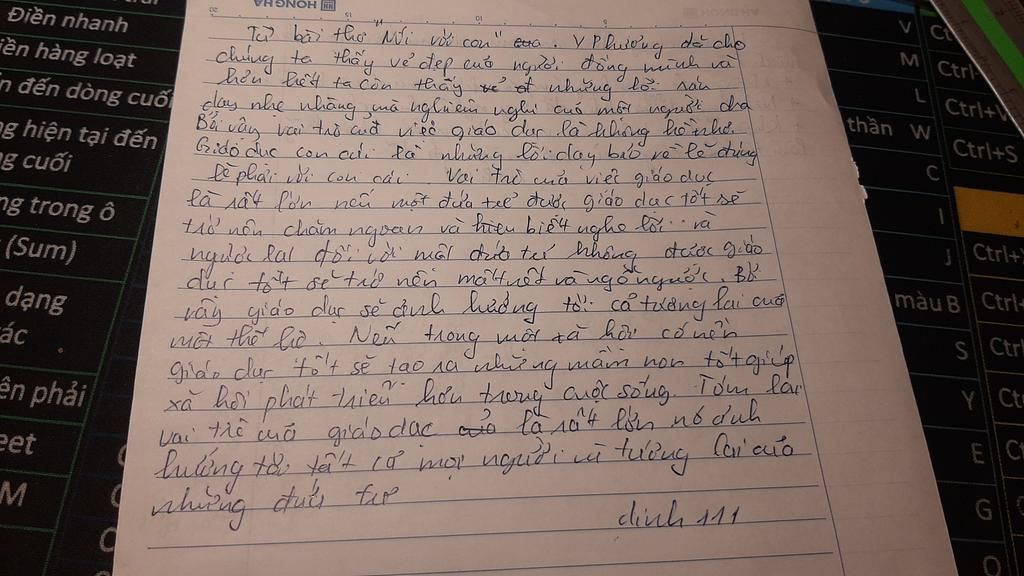 HONG HA
20 15 10 5
Từ bài thơ "Nói với con" của. Y Phương đã cho
chúng ta thấy vẻ đẹp của người đồng mình và
hơn hết ta còn thấy những lời răn
dạy nhẹ nhàng mà nghiêm nghị của một người cha
Bởi vậy vai trò của việc giáo dục là không hề nhỏ.
Giáo dục con cái là những lời dạy bảo về lẽ đúng
lẽ phải với con cái. Vai trò của việc giáo dục
là rất lớn nếu một đứa trẻ được giáo dục tốt sẽ
trở nên chăm ngoan và hiểu biết nghe lời.. và
ngược lại đối với một đứa trẻ không được giáo
dục tốt sẽ trở nên mất nết và ngỗ ngược. Bởi
vậy giáo dục sẽ ảnh hưởng tới cả tương lai của
một thế hệ. Nếu trong một xã hội có nền
giáo dục tốt sẽ tạo ra những mầm non tốt giúp
xã hội phát triển hơn trong cuộc sống. Tóm lại
vai trò của giáo dục là rất lớn nó ảnh
hưởng tới tất cả mọi người vì tương lai của
những đứa trẻ
dinh 111
Điền nhanh
iền hàng loạt
ến đến dòng cuối
ng hiện tại đến
ng cuối
ng trong ô
(Sum)
dạng
ác
ên phải
eet
M
V
M
L
thần W
C
I
J
màu B
S
Y
E
G
O
Ctrl-
Ctrl+V
Ctrl+S
Ctrl+